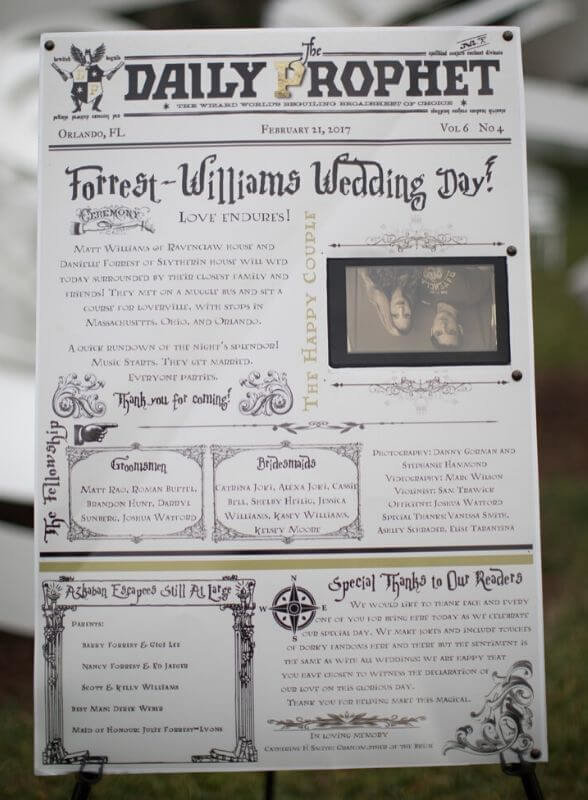 The
DAILY PROPHET
THE WIZARD WORLD'S BEGUILING BROADSHEET OF CHOICE
ORLANDO, FL
FEBRUARY 21, 2017
VOL 6 NO 4
Forrest-Williams Wedding Day!
CEREMONY
LOVE ENDURES!
MATT WILLIAMS OF RAVENCLAW HOUSE AND
DANIELLE FORREST OF SLYTHERIN HOUSE WILL WED
TODAY SURROUNDED BY THEIR CLOSEST FAMILY AND
FRIENDS! THEY MET ON A MUGGLE BUS AND SET A
COURSE FOR LOVERVILLE, WITH STOPS IN
MASSACHUSETTS, OHIO, AND ORLANDO.
A QUICK RUNDOWN OF THE NIGHT'S SPLENDOR!
MUSIC STARTS. THEY GET MARRIED.
EVERYONE PARTIES.
Thank you for coming!
THE HAPPY COUPLE
The Fellowship
Groomsmen
MATT RAO, ROMAN BUTTEL,
BRANDON HUNT, DARRYL
SUNBERG, JOSHUA WATFORD
Bridesmaids
CATRINA JOKI, ALEXA JOKI, CASSIE
BELL, SHELBY HEFLIG, JESSICA
WILLIAMS, KASEY WILLIAMS,
KELSEY MOORE
PHOTOGRAPHY: DANNY GORMAN AND
STEPHANIE HAMMOND
VIDEOGRAPHY: MARC WILSON
VIOLINIST: SAN TRAWICK
OFFICIENT: JOSHUA WATFORD
SPECIAL THANKS: VANESSA SMITH,
ASHLEY SCHRADER, ELISE TARANTINA
Azkaban Escapees Still At Large
PARENTS:
BARRY FORREST & GIGI LEE
NANCY FORREST & ED JAEGER
SCOTT & KELLY WILLIAMS
BEST MAN: DEREK WEBER
MAID OF HONOUR: JULIE FORREST-LYONS
N
W
E
S
Special Thanks to Our Readers
WE WOULD LIKE TO THANK EACH AND EVERY
ONE OF YOU FOR BEING HERE TODAY AS WE CELEBRATE
OUR SPECIAL DAY. WE MAKE JOKES AND INCLUDE TOUCHES
OF DORKY FANDOMS HERE AND THERE BUT THE SENTIMENT IS
THE SAME AS WITH ALL WEDDINGS: WE ARE HAPPY THAT
YOU HAVE CHOSEN TO WITNESS THE DECLARATION OF
OUR LOVE ON THIS GLORIOUS DAY.
THANK YOU FOR HELPING MAKE THIS MAGICAL.
IN LOVING MEMORY
CATHERINE H SMITH: GRANDMOTHER OF THE BRIDE